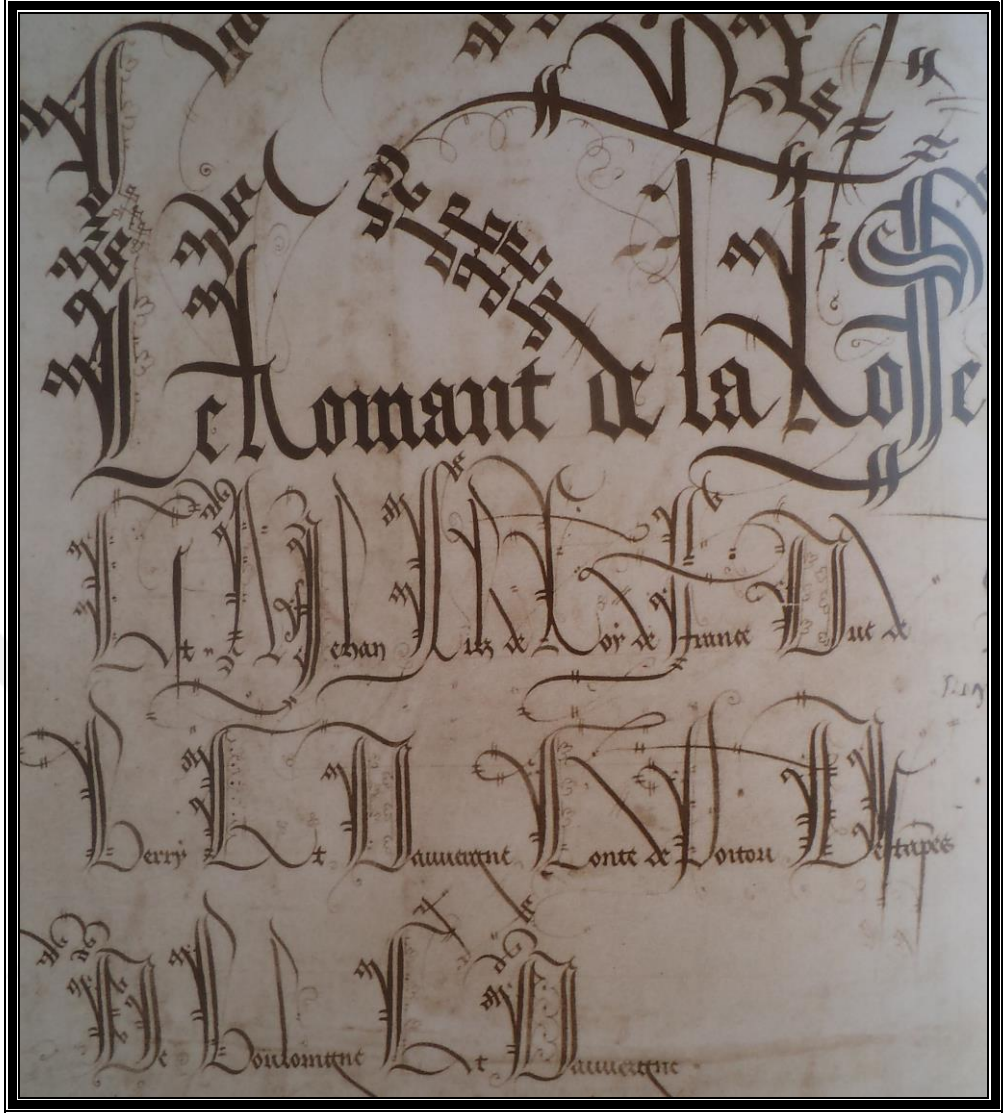 Le Romant de la Rose
Et Jehan Filz de Roy de France Duc de
Berry Et Dauuergne Conte de Poitou Destapes
De Bouloingne Et Dauuergne